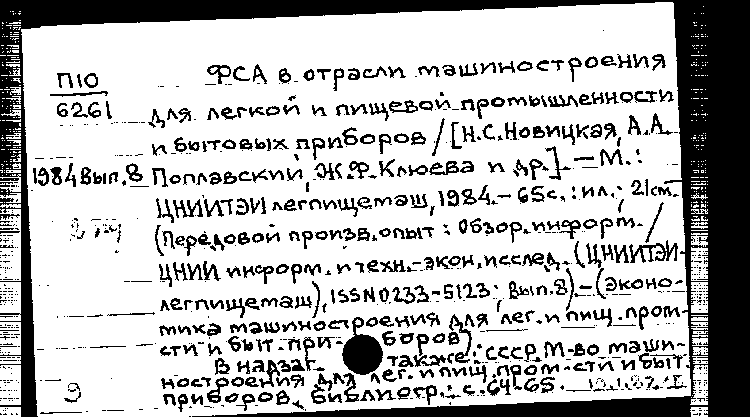 П10
6261
1984 Вып.8
ФСА в отрасли машиностроения
для легкой и пищевой промышленности
и бытовых приборов / [Н.С.Новицкая, А.А.
Поплавский, Ж.Ф.Клюева и др.]. — М.:
ЦНИИТЭИлегпищемаш, 1984. – 65с. : ил.; 21см. –
(Передовой произв. опыт : Обзор. информ. /
ЦНИИ информ. и техн.-экон. исслед. (ЦНИИТЭИ-
легпищемаш), ISSN0233-5123; Вып.8). – (Эконо-
мика машиностроения для лег. и пищ. пром-
сти и быт. при- боров).
В надзаг. также: СССР, М-во маши-
ностроения для лег. и пищ. пром-сти и быт.
приборов. Библиогр.: с. 64-65.
9